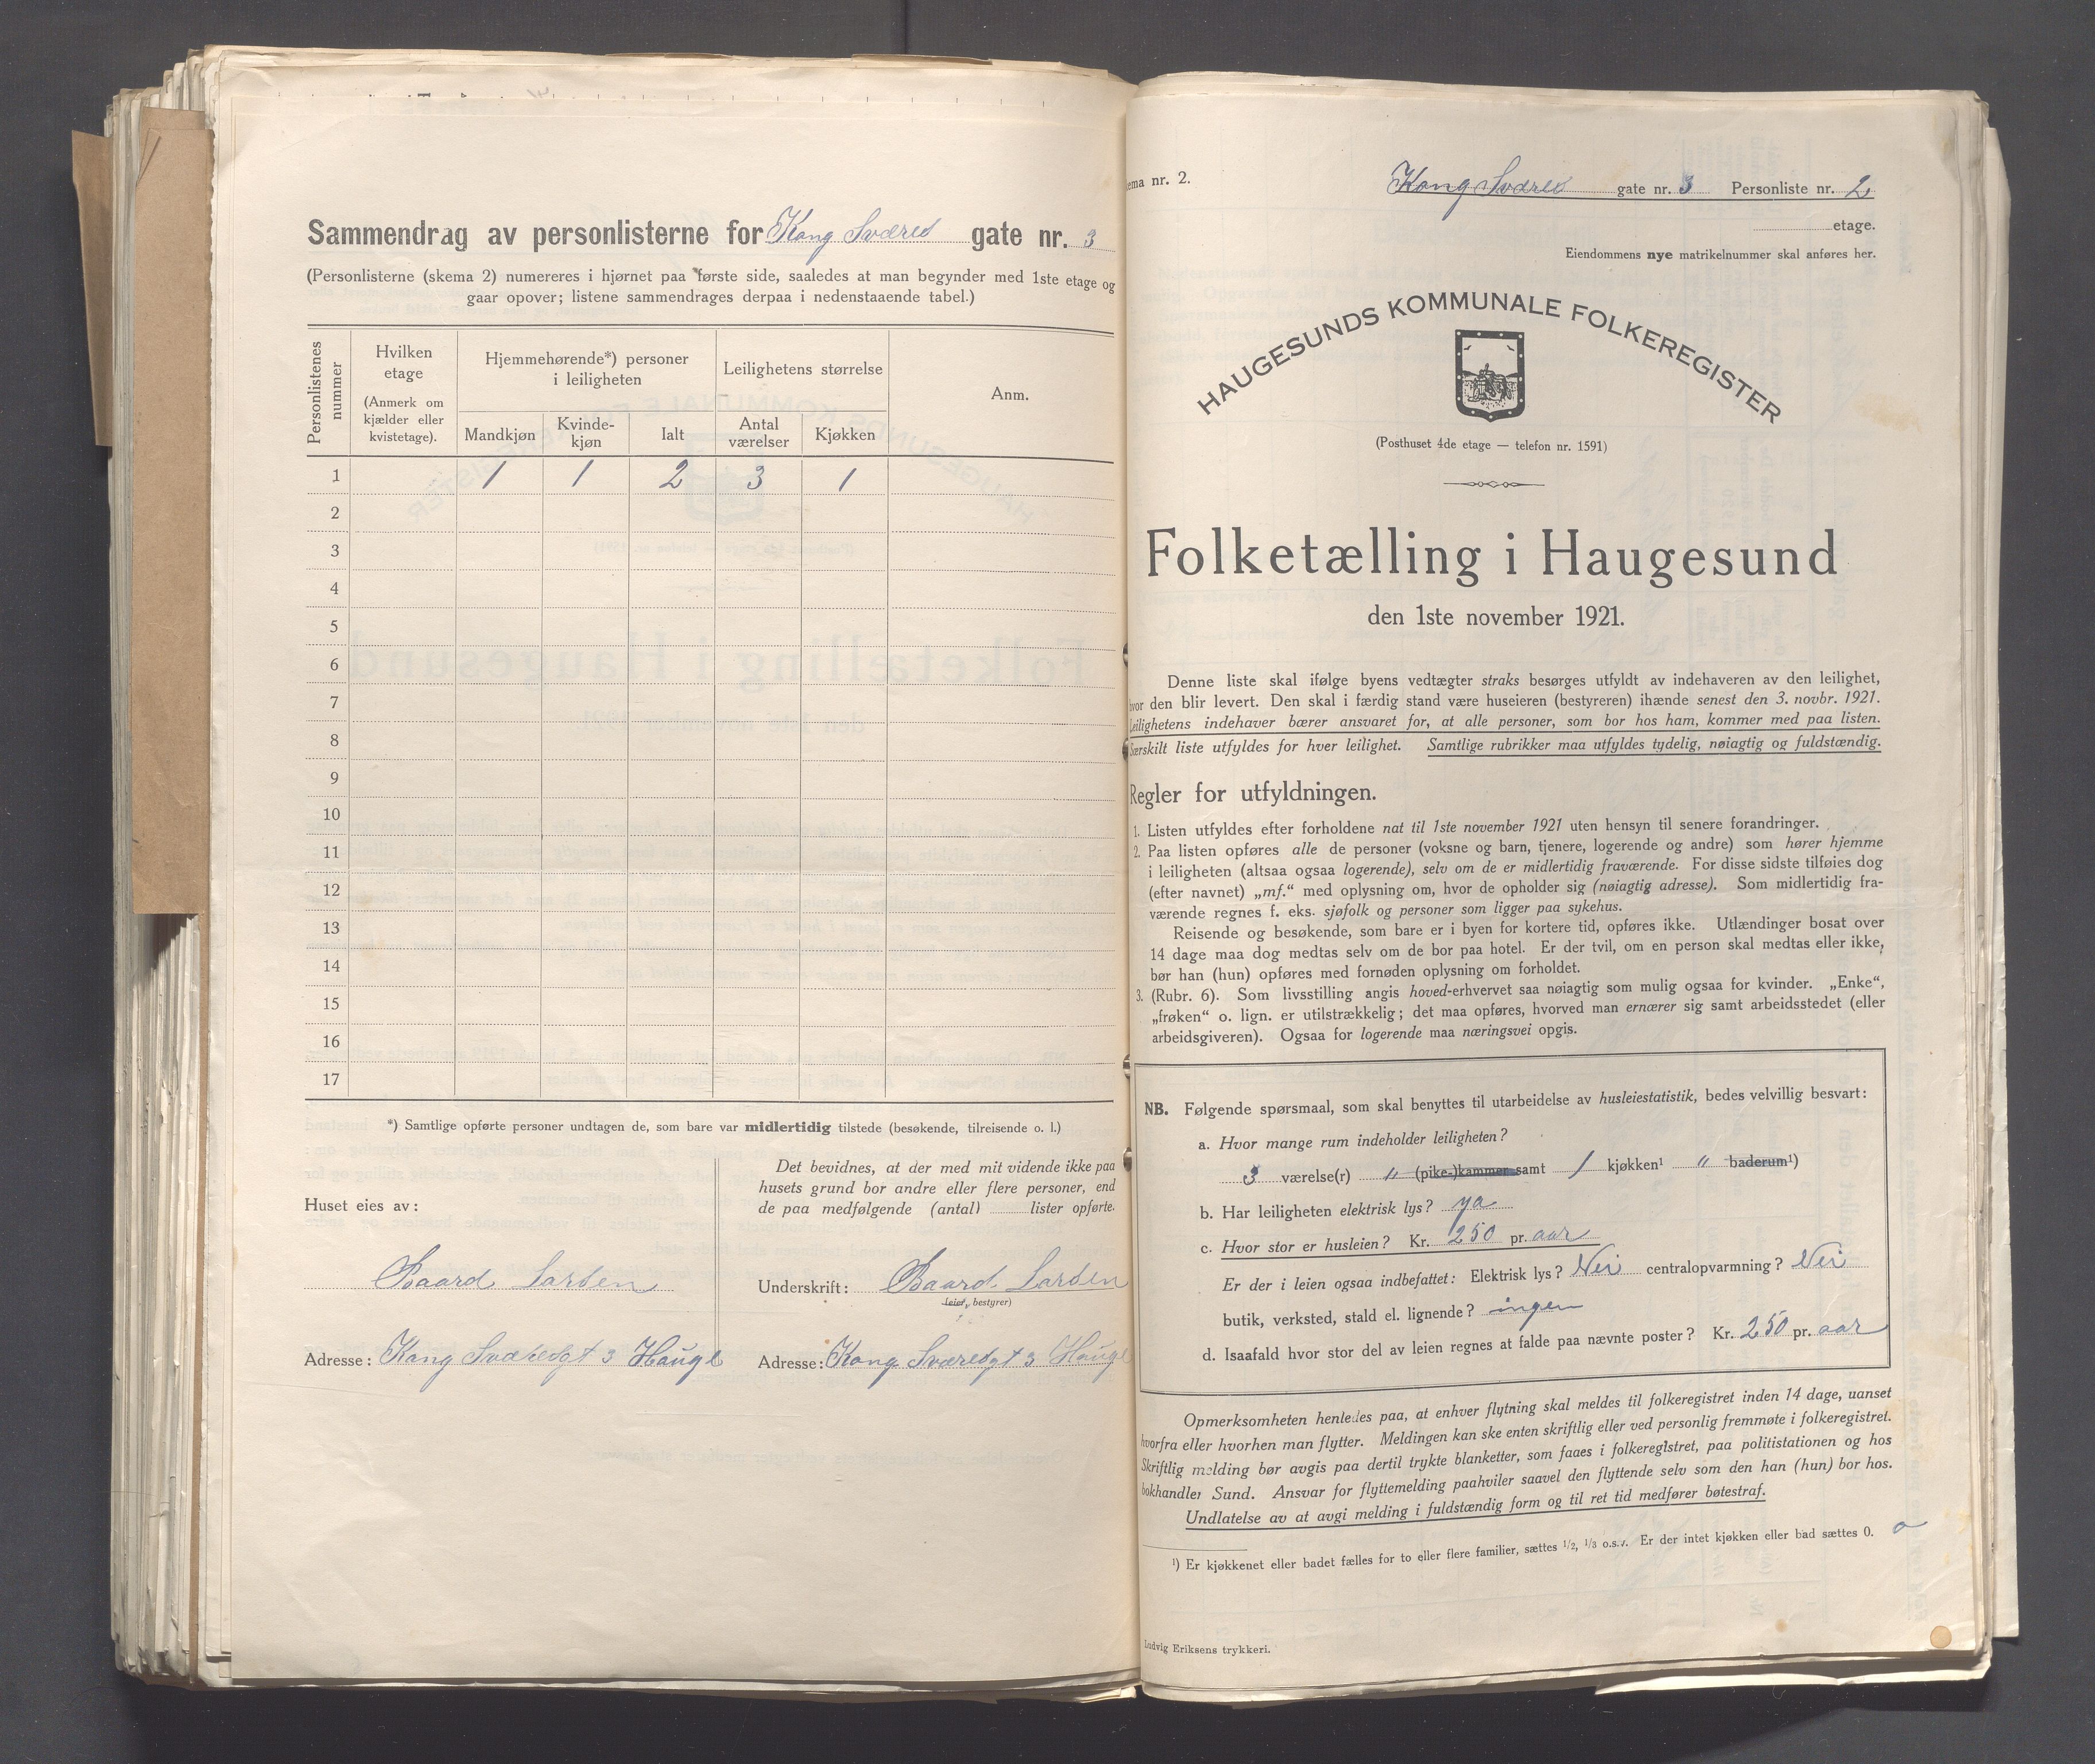 Sammendrag av personlisterne for Kong Sværes gate nr. 3
(Personlisterne (skema 2) numereres i hjørnet paa første side, saaledes at man begynder med 1ste etage og
gaar opover; listene sammendrages derpaa i nedenstaaende tabel.)
Personlistenes nummer
Hvilken etage
(Anmerk om kjælder eller kvistetage).
Hjemmehørende*) personer i leiligheten
Leilighetens størrelse
Anm.
Mandkjøn
Kvinde-kjøn
Ialt
Antal værelser
Kjøkken
1 1 1 2 3 1
2
3
4
5
6
7
8
9
10
11
12
13
14
15
16
17
*) Samtlige opførte personer undtagen de, som bare var midlertidig tilstede (besøkende, tilreisende o. l.)
Huset eies av:
Baard Larsen
Adresse: Kong Sværesgt 3 Hauge
Det bevidnes, at der med mit vidende ikke paa
husets grund bor andre eller flere personer, end
de paa medfølgende (antal) lister opførte.
Underskrift: Baard Larsen
(eier, bestyrer)
Adresse: Kong Sværesgt 3 Hauge
ema nr. 2.
Kong Sværes gate nr. 3 Personliste nr. 2
etage.
Eiendommens nye matrikelnummer skal anføres her.
HAUGESUNDS KOMMUNALE FOLKEREGISTER
(Posthuset 4de etage — telefon nr. 1591)
Folketælling i Haugesund
den 1ste november 1921.
Denne liste skal ifølge byens vedtægter straks besørges utfyldt av indehaveren av den leilighet,
hvor den blir levert. Den skal i færdig stand være huseieren (bestyreren) ihænde senest den 3. novbr. 1921.
Leilighetens indehaver bærer ansvaret for, at alle personer, som bor hos ham, kommer med paa listen.
Særskilt liste utfyldes for hver leilighet. Samtlige rubrikker maa utfyldes tydelig, nøiagtig og fuldstændig.
Regler for utfyldningen.
1. Listen utfyldes efter forholdene nat til 1ste november 1921 uten hensyn til senere forandringer.
2. Paa listen opføres alle de personer (voksne og barn, tjenere, logerende og andre) som hører hjemme
i leiligheten (altsaa ogsaa logerende), selv om de er midlertidig fraværende. For disse sidste tilføies dog
(efter navnet) „mf.“ med oplysning om, hvor de opholder sig (nøiagtig adresse). Som midlertidig fra-
værende regnes f. eks. sjøfolk og personer som ligger paa sykehus.
Reisende og besøkende, som bare er i byen for kortere tid, opføres ikke. Utlændinger bosat over
14 dage maa dog medtas selv om de bor paa hotel. Er der tvil, om en person skal medtas eller ikke,
bør han (hun) opføres med fornøden oplysning om forholdet.
3. (Rubr. 6). Som livsstilling angis hoved-erhvervet saa nøiagtig som mulig ogsaa for kvinder. „Enke“,
„frøken“ o. lign. er utilstrækkelig; det maa opføres, hvorved man ernærer sig samt arbeidsstedet (eller
arbeidsgiveren). Ogsaa for logerende maa næringsvei opgis.
NB. Følgende spørsmaal, som skal benyttes til utarbeidelse av husleiestatistik, bedes velvillig besvart:
a. Hvor mange rum indeholder leiligheten?
3 værelse(r) " (pike-)kammer samt 1 kjøkken¹ " baderum¹)
b. Har leiligheten elektrisk lys? ya
c. Hvor stor er husleien? Kr. 250 pr. aar
Er der i leien ogsaa indbefattet: Elektrisk lys? Nei centralopvarmning? Nei
butik, verksted, stald el. lignende? ingen
d. Isaafald hvor stor del av leien regnes at falde paa nævnte poster? Kr. 250 pr. aar
Opmerksomheten henledes paa, at enhver flytning skal meldes til folkeregistret inden 14 dage, uanset
hvorfra eller hvorhen man flytter. Meldingen kan ske enten skriftlig eller ved personlig fremmøte i folkeregistret.
Skriftlig melding bør avgis paa dertil trykte blanketter, som faaes i folkeregistret, paa politistationen og hos
bokhandler Sund. Ansvar for flyttemelding paahviler saavel den flyttende selv som den han (hun) bor hos.
Undlatelse av at avgi melding i fuldstændig form og til ret tid medfører bøtestraf.
¹) Er kjøkkenet eller badet fælles for to eller flere familier, sættes 1/2, 1/3 o.s.v. Er der intet kjøkken eller bad sættes 0. o
Ludvig Eriksens trykkeri.